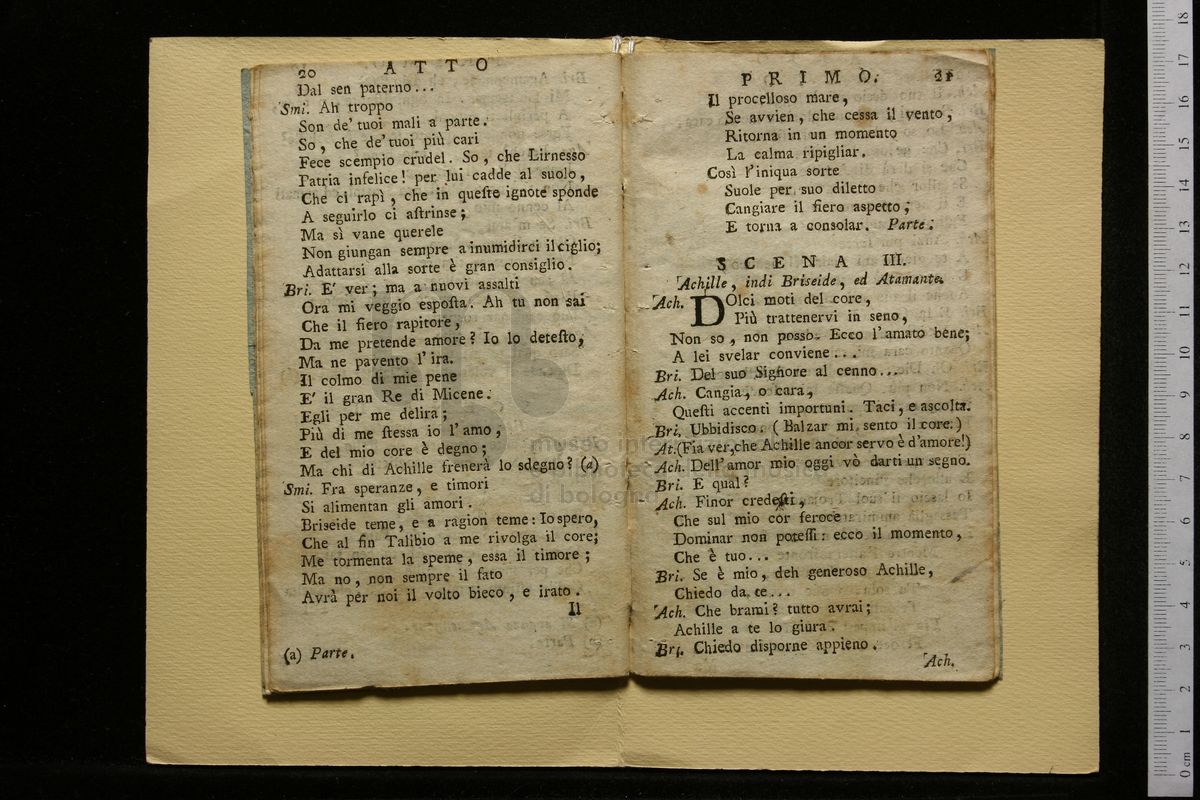 20 ATTO
Dal sen paterno...
Smi. Ah troppo
Son de' tuoi mali a parte.
So, che de' tuoi più cari
Fece scempio crudel. So, che Lirnesso
Patria infelice! per lui cadde al suolo,
Che ci rapì, che in queſte ignote sponde
A seguirlo ci aſtrinse;
Ma sì vane querele
Non giungan sempre a inumidirci il ciglio;
Adattarsi alla sorte è gran consiglio.
Bri. E' ver; ma a nuovi assalti
Ora mi veggio espoſta. Ah tu non sai
Che il fiero rapitore,
Da me pretende amore? Io lo deteſto,
Ma ne pavento l' ira.
Il colmo di mie pene
E' il gran Re di Micene.
Egli per me delira;
Più di me ſtessa io l' amo,
E del mio core è degno;
Ma chi di Achille frenerà lo sdegno? (a)
Smi. Fra speranze, e timori
Si alimentan gli amori.
Briseide teme, e a ragion teme: Io spero,
Che al fin Taltibio a me rivolga il core;
Me tormenta la speme, essa il timore;
Ma no, non sempre il fato
Avrà per noi il volto bieco, e irato.
Il
(a) Parte.
PRIMO. 21
Il procelloso mare,
Se avvien, che cessa il vento,
Ritorna in un momento
La calma ripigliar.
Così l'iniqua sorte
Suole per suo diletto
Cangiare il fiero aspetto,
E torna a consolar. Parte.
SCENA III.
Achille, indi Briseide, ed Atamante.
Ach. DOlci moti del core,
Più trattenervi in seno,
Non so, non posso. Ecco l'amato bene;
A lei svelar conviene...
Bri. Del suo Signore al cenno...
Ach. Cangia, o cara,
Queſti accenti importuni. Taci, e ascolta.
Bri. Ubbidisco. (Balzar mi sento il core.)
At. (Fia ver, che Achille ancor servo è d'amore!)
Ach. Dell' amor mio oggi vò darti un segno.
Bri. E qual?
Ach. Finor credeſti,
Che sul mio cor feroce
Dominar non poteſſi: ecco il momento,
Che è tuo...
Bri. Se è mio, deh generoso Achille,
Chiedo da te...
Ach. Che brami? tutto avrai;
Achille a te lo giura.
Bri. Chiedo disporne appieno.
Ach.
di bologna
0 cm 1 2 3 4 5 6 7 8 9 10 11 12 13 14 15 16 17 18